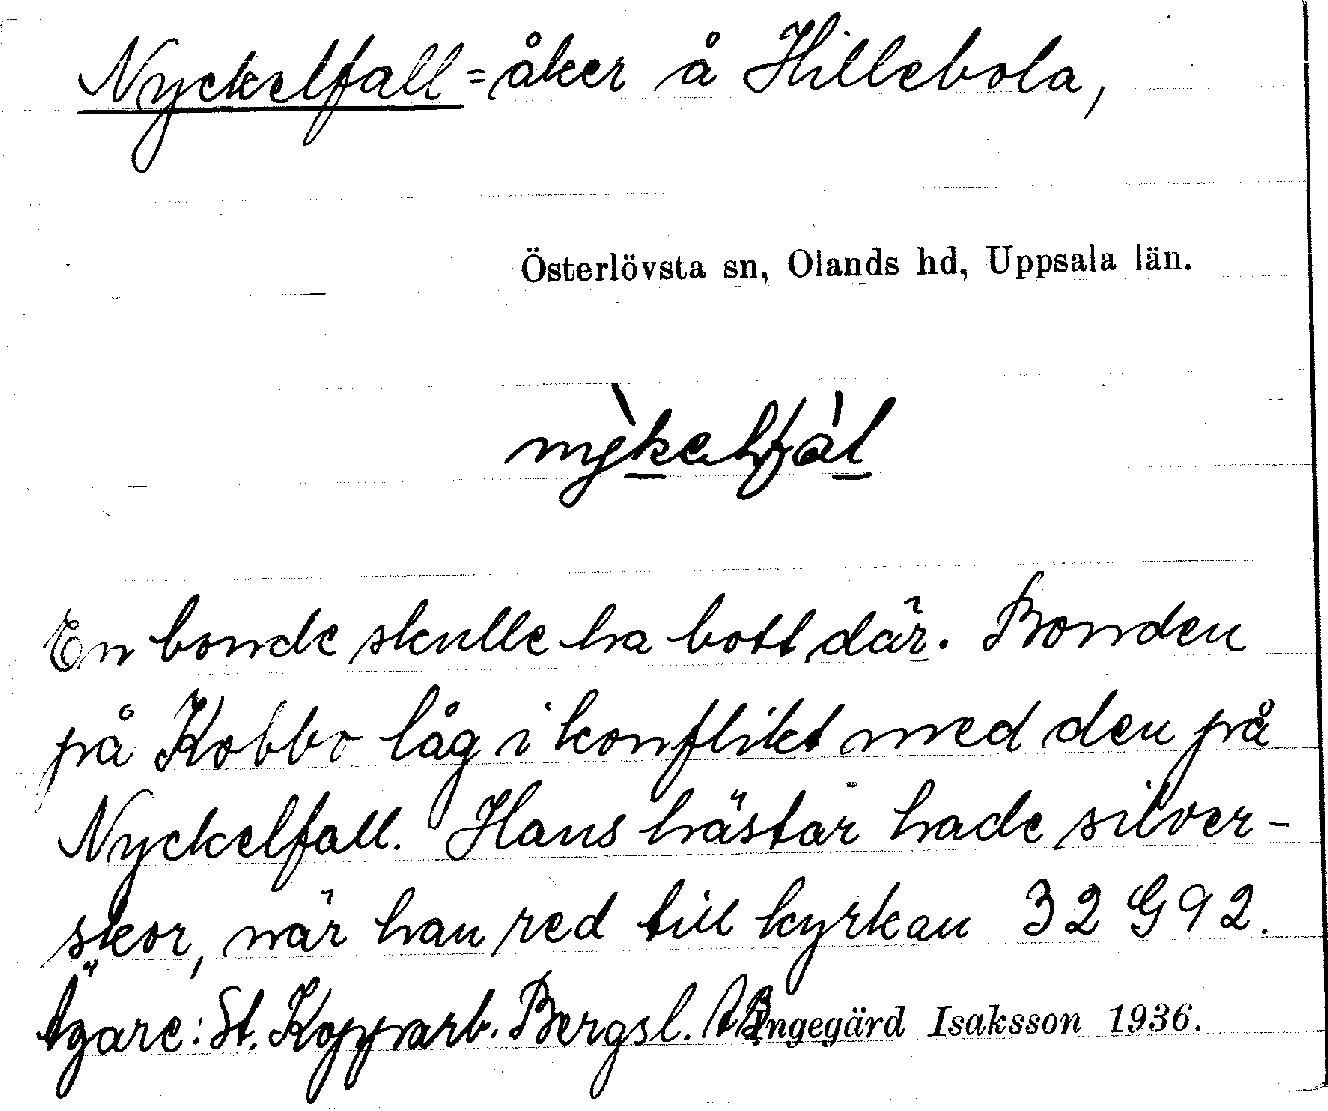 Nyckelfall = åker å Hillebola,
Österlövsta sn, Olands hd, Uppsala län.
nỳkelfàl
En bonde skulle ha bott där. Bonden
på Kobbo låg i konflikt med den på
Nyckelfall. Hans hästar hade silver-
skor, när han red till kyrkan 32 G 92.
Ägare: St. Kopparb. Bergsl. AB Ingegärd Isaksson 1936.